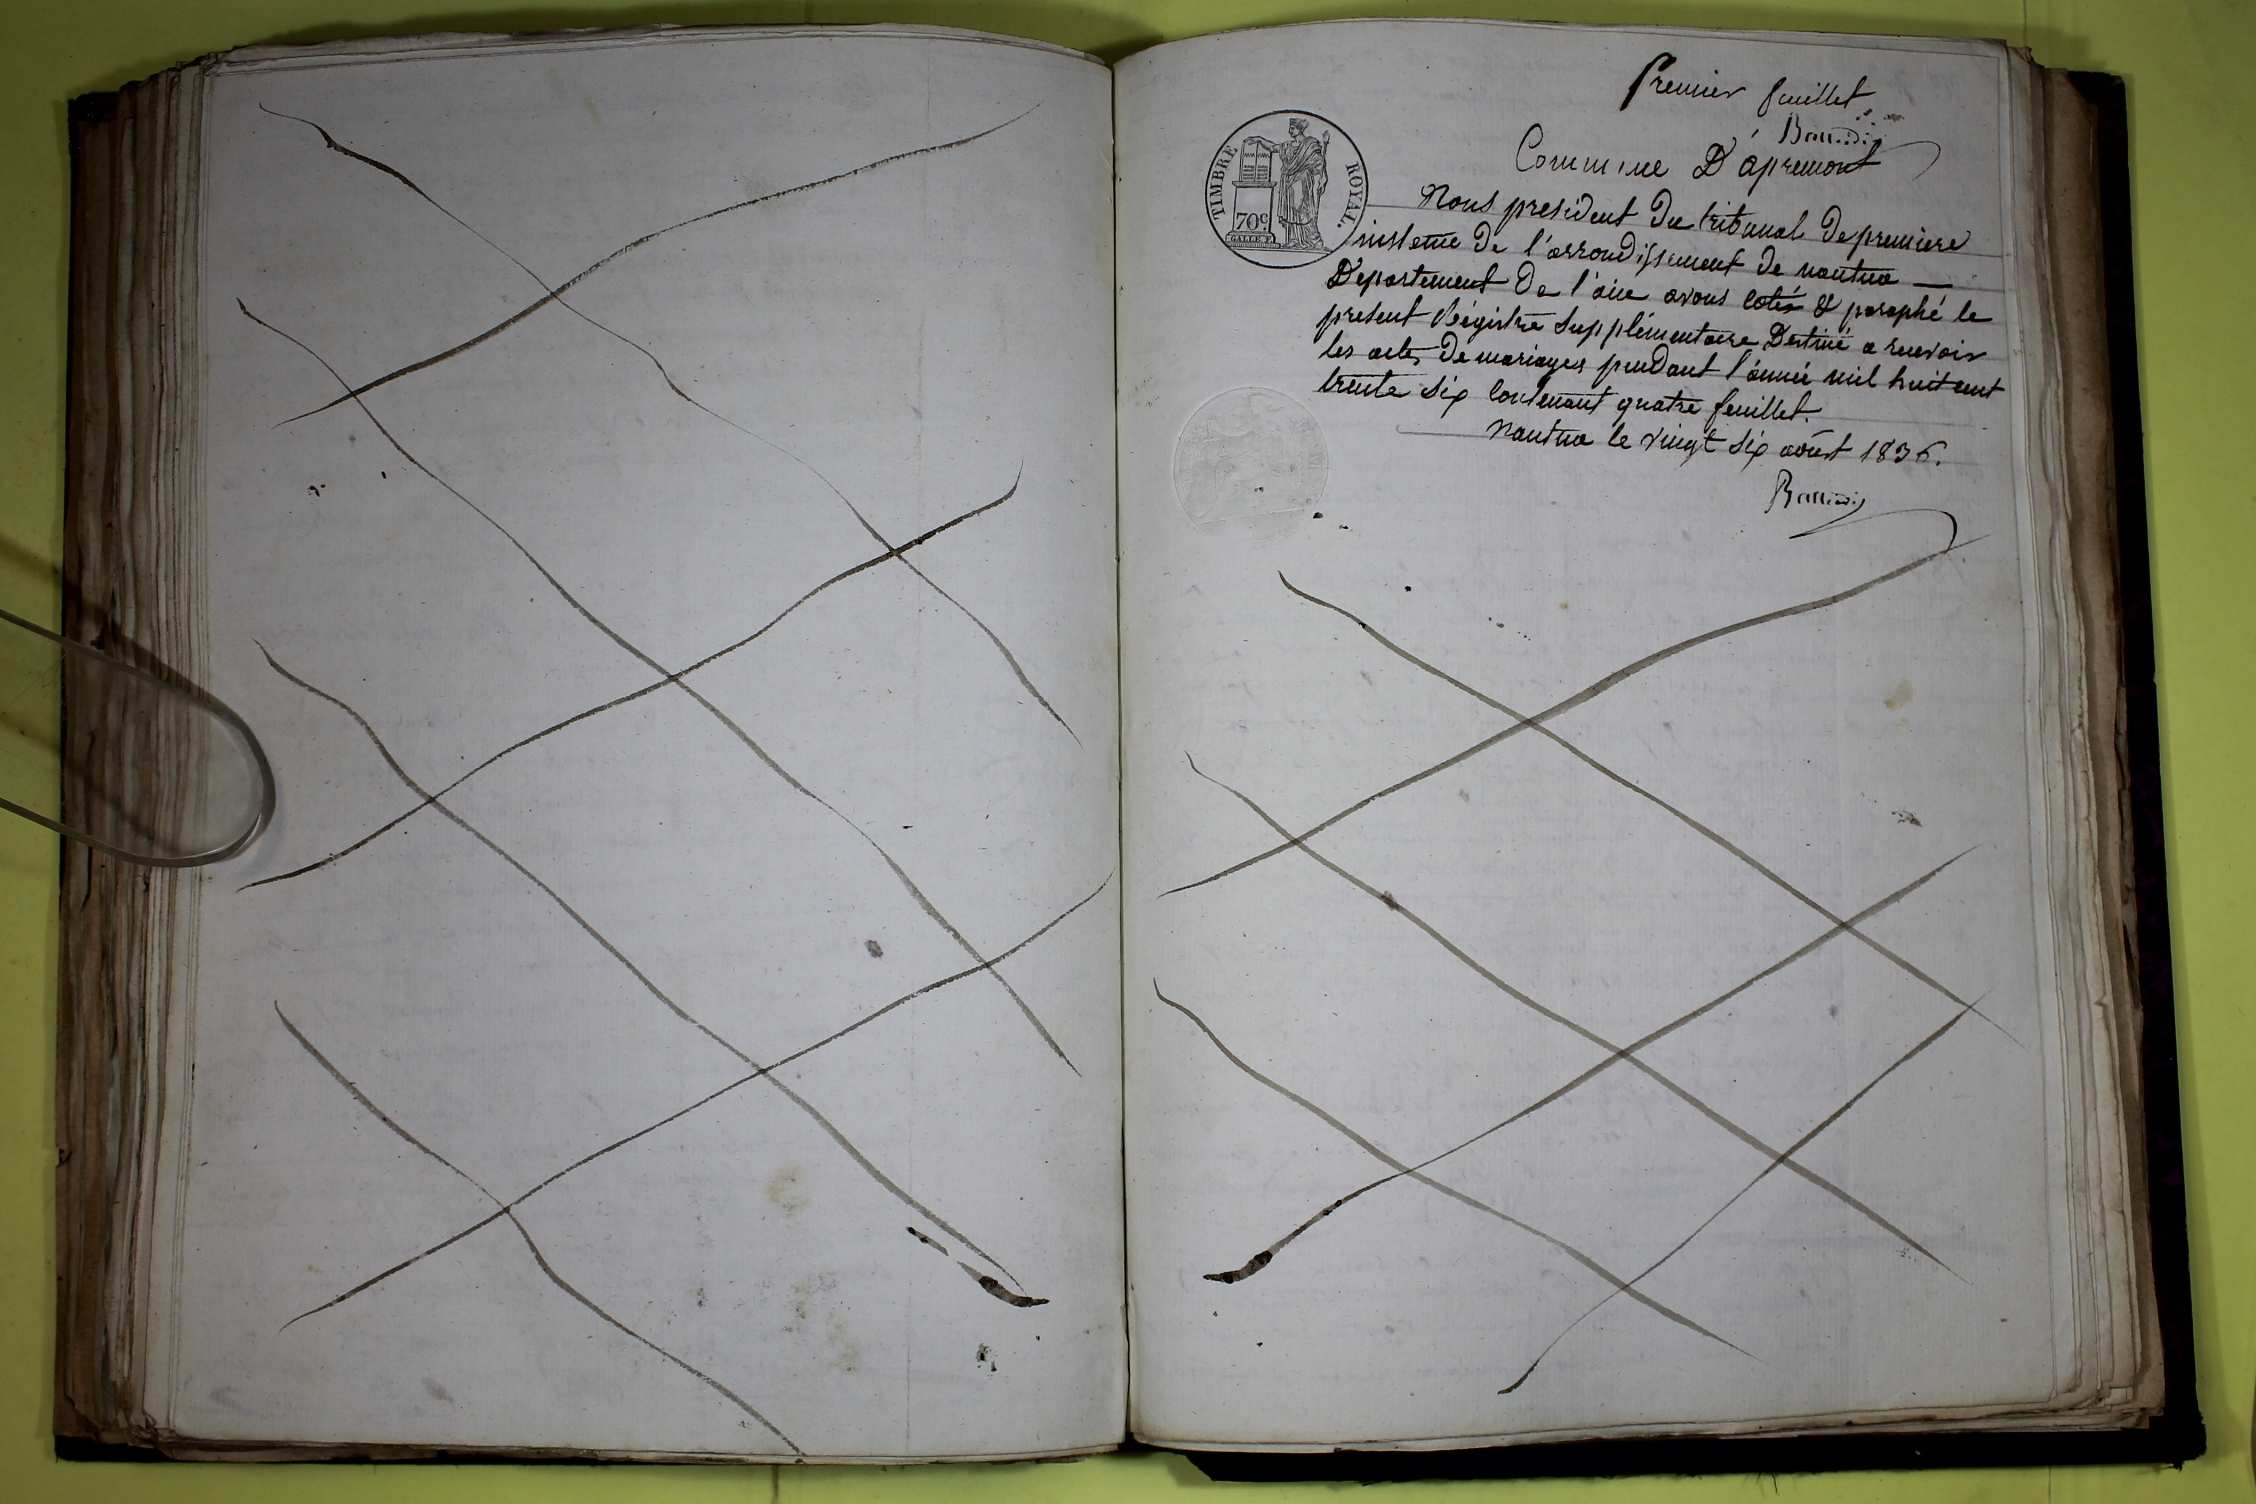 premier feuillet
Commune D'apremont
TIMBRE ROYAL.
70c.
GALLE F.
Nous president du tribunal de premiere
instance de l'arrondissement de nantua —
Departement de l'ain avons cotés & paraphé le
present Régistre supplémentaire Destiné a recevoir
les actes de mariages pendant l'année mil huit cent
trente six contenant quatre feuillet.
nantua le vingt six août 1836.